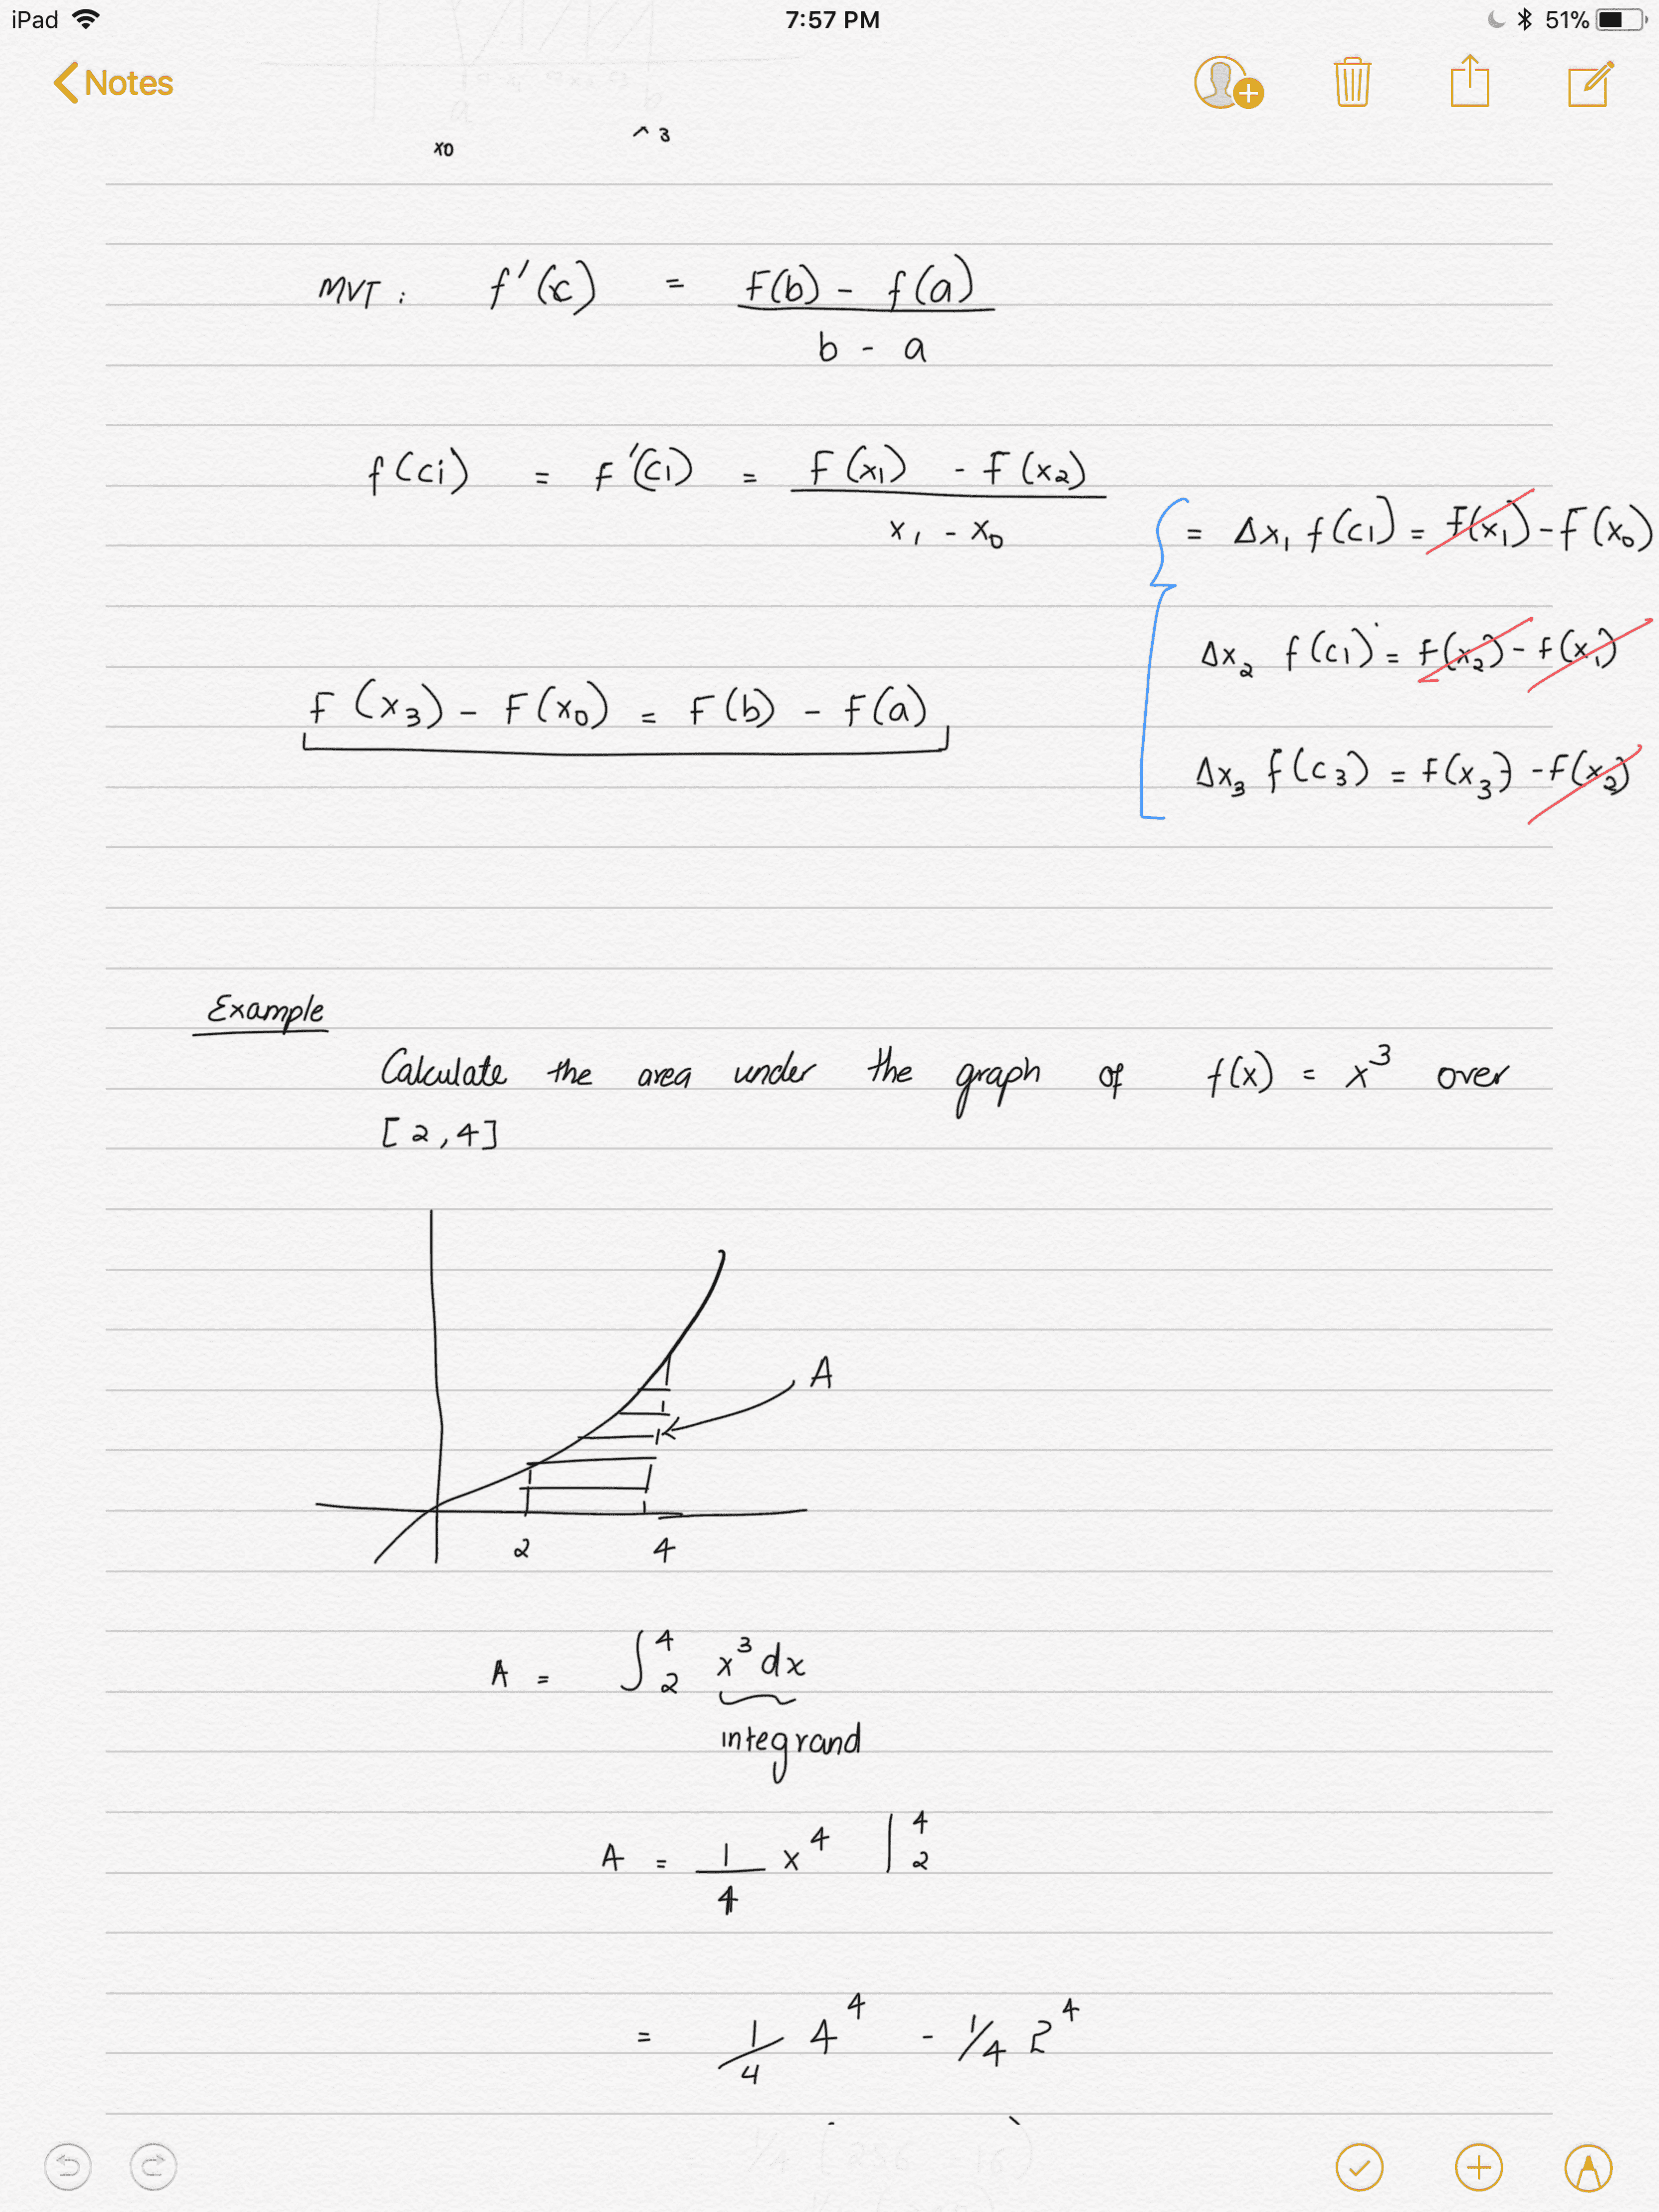 iPad 7:57 PM 51%
Notes
a b
x0 ^ 3
MVT: f'(c) = F(b) - f(a)
b - a
f(ci) = F'(c1) = F(x1) - F(x2)
x1 - x0
= Δx1 f(c1) = F(x1) - F(x0)
Δx2 f(c1) = F(x2) - f(x1)
F(x3) - F(x0) = F(b) - F(a)
Δx3 f(c3) = F(x3) - F(x2)
Example
Calculate the area under the graph of f(x) = x³ over
[2,4]
A
2 4
A = ∫ 4 2 x³ dx
integrand
A = 1/4 x⁴ | 4 2
= 1/4 4⁴ - 1/4 2⁴
= 1/4 (256 - 16)